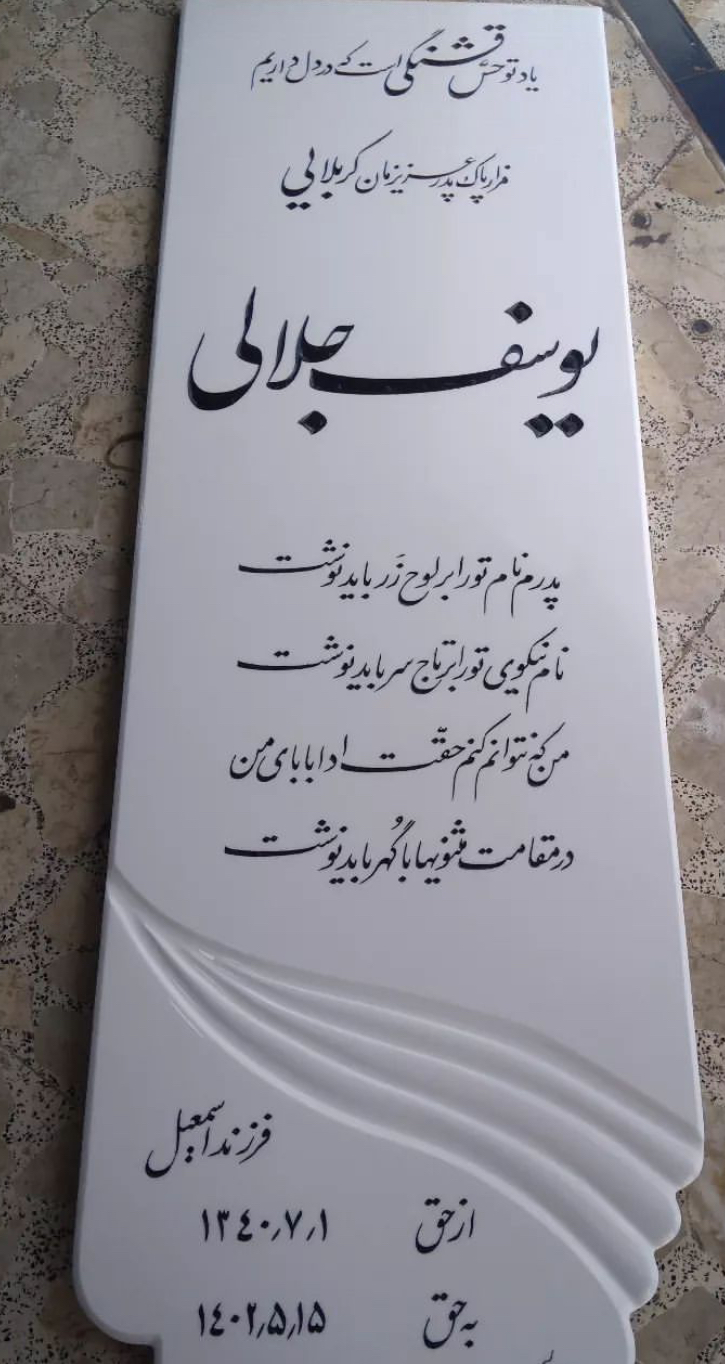 یاد تو حسّ قشنگی است که در دل داریم
مزار پاک پدر عزیزمان کربلایی
یوسف جلالی
پدرم نام تو را بر لوح زَر باید نوشت
نام نیکوی تو را بر تاج سر باید نوشت
من که نتوانم کنم حقّت ادا بابای من
در مقامت مثنویها با گُهر باید نوشت
فرزند اسمعیل
از حق ۱۳۴۰٫۷٫۱
به حق ۱۴۰۲٫۵٫۱۵